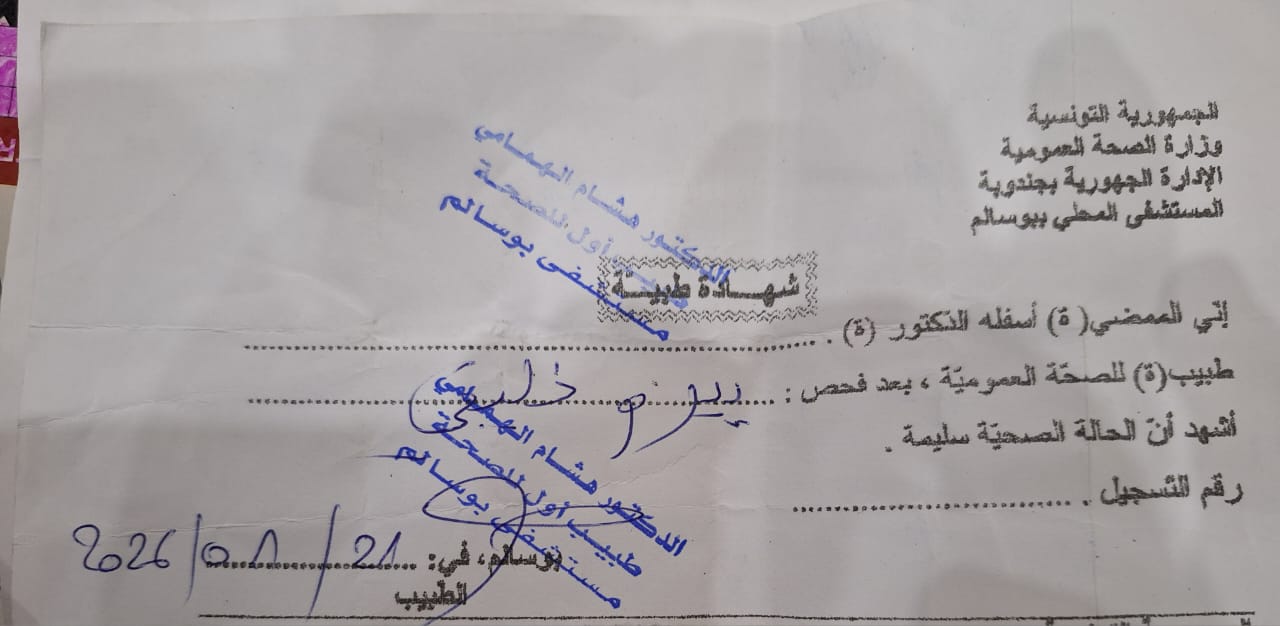 الجمهورية التونسية
وزارة الصحة العمومية
الإدارة الجهورية بجندوبة
المستشفى المحلي ببوسالم
الدكتور هشام الهمامي
طبيب أول للصحة
مستشفى بوسالم
شهادة طبية
إنّي الممضي(ة) أسفله الدكتور (ة) .
طبيب(ة) للصحّة العموميّة ، بعد فحص :
أشهد أنّ الحالة الصحيّة سليمة .
رقم التسجيل .
الدكتور هشام الهمامي
طبيب أول للصحة
مستشفى بوسالم
بوسالم، في: 21/01/2026
الطبيب